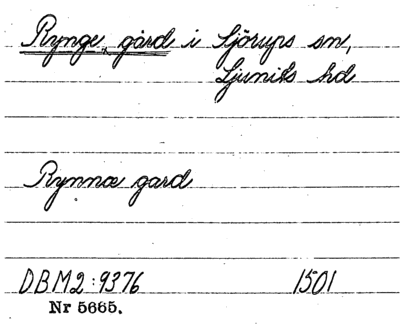 Rynge, gård i Sjörups sn,
Ljunits hd
Rynnæ gard
DBM2:9376 1501
Nr 5665.